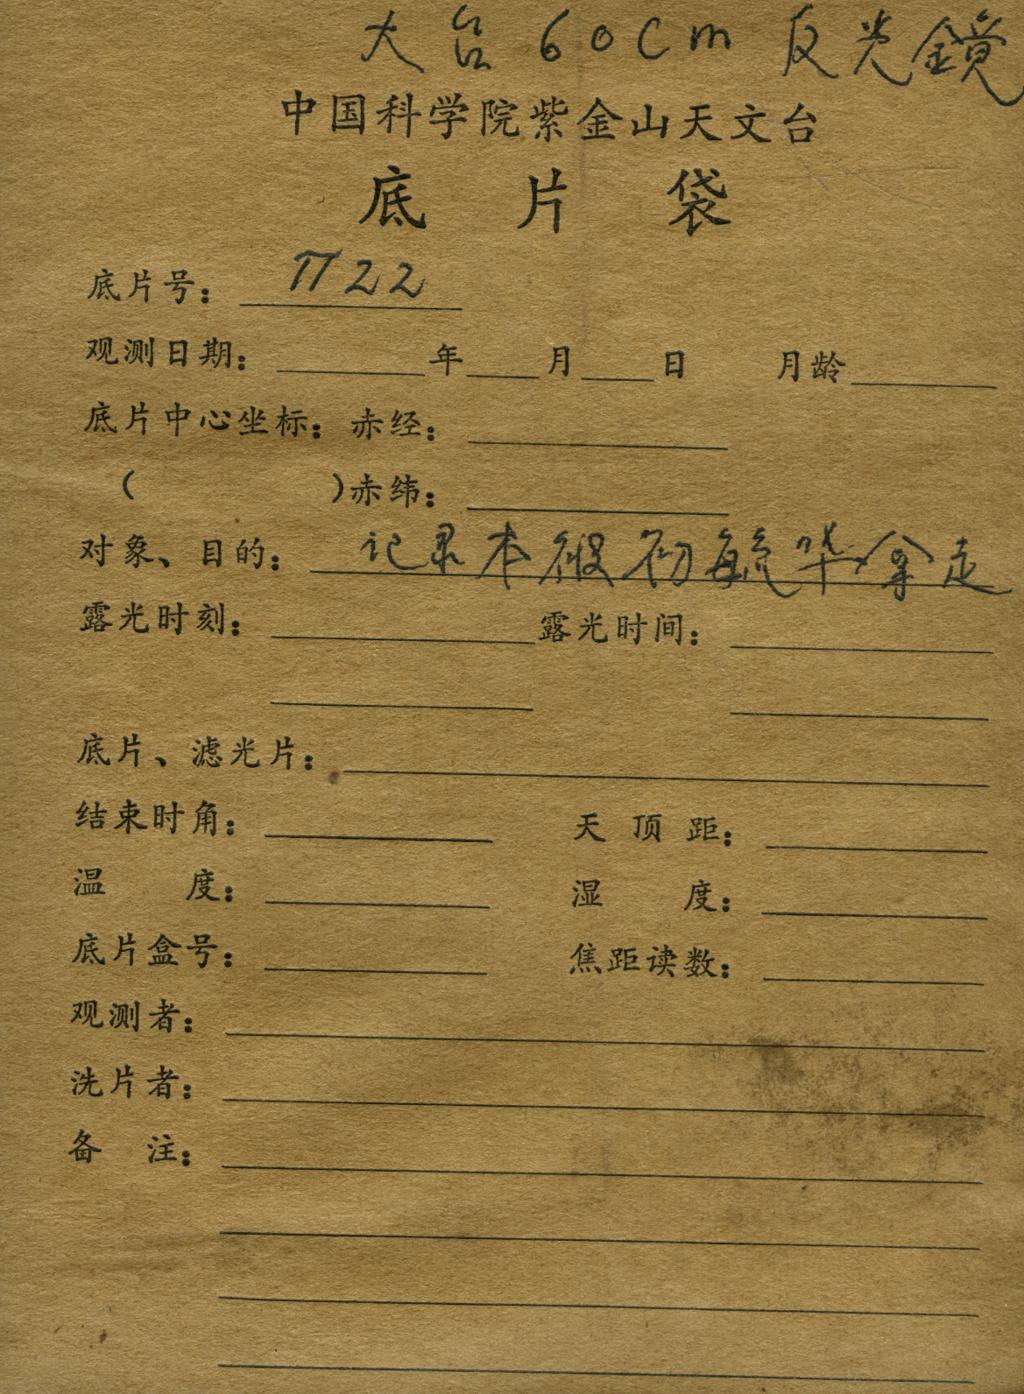 大台 60cm 反光鏡
中国科学院紫金山天文台
底 片 袋
底片号： π22
观测日期： 年 月 日 月龄
底片中心坐标：赤经：
( )赤纬：
对象、目的： 记录本被初毓华拿走
露光时刻： 露光时间：
底片、滤光片：
结束时角： 天 顶 距：
温 度： 湿 度：
底片盒号： 焦距读数：
观测者：
洗片者：
备 注：